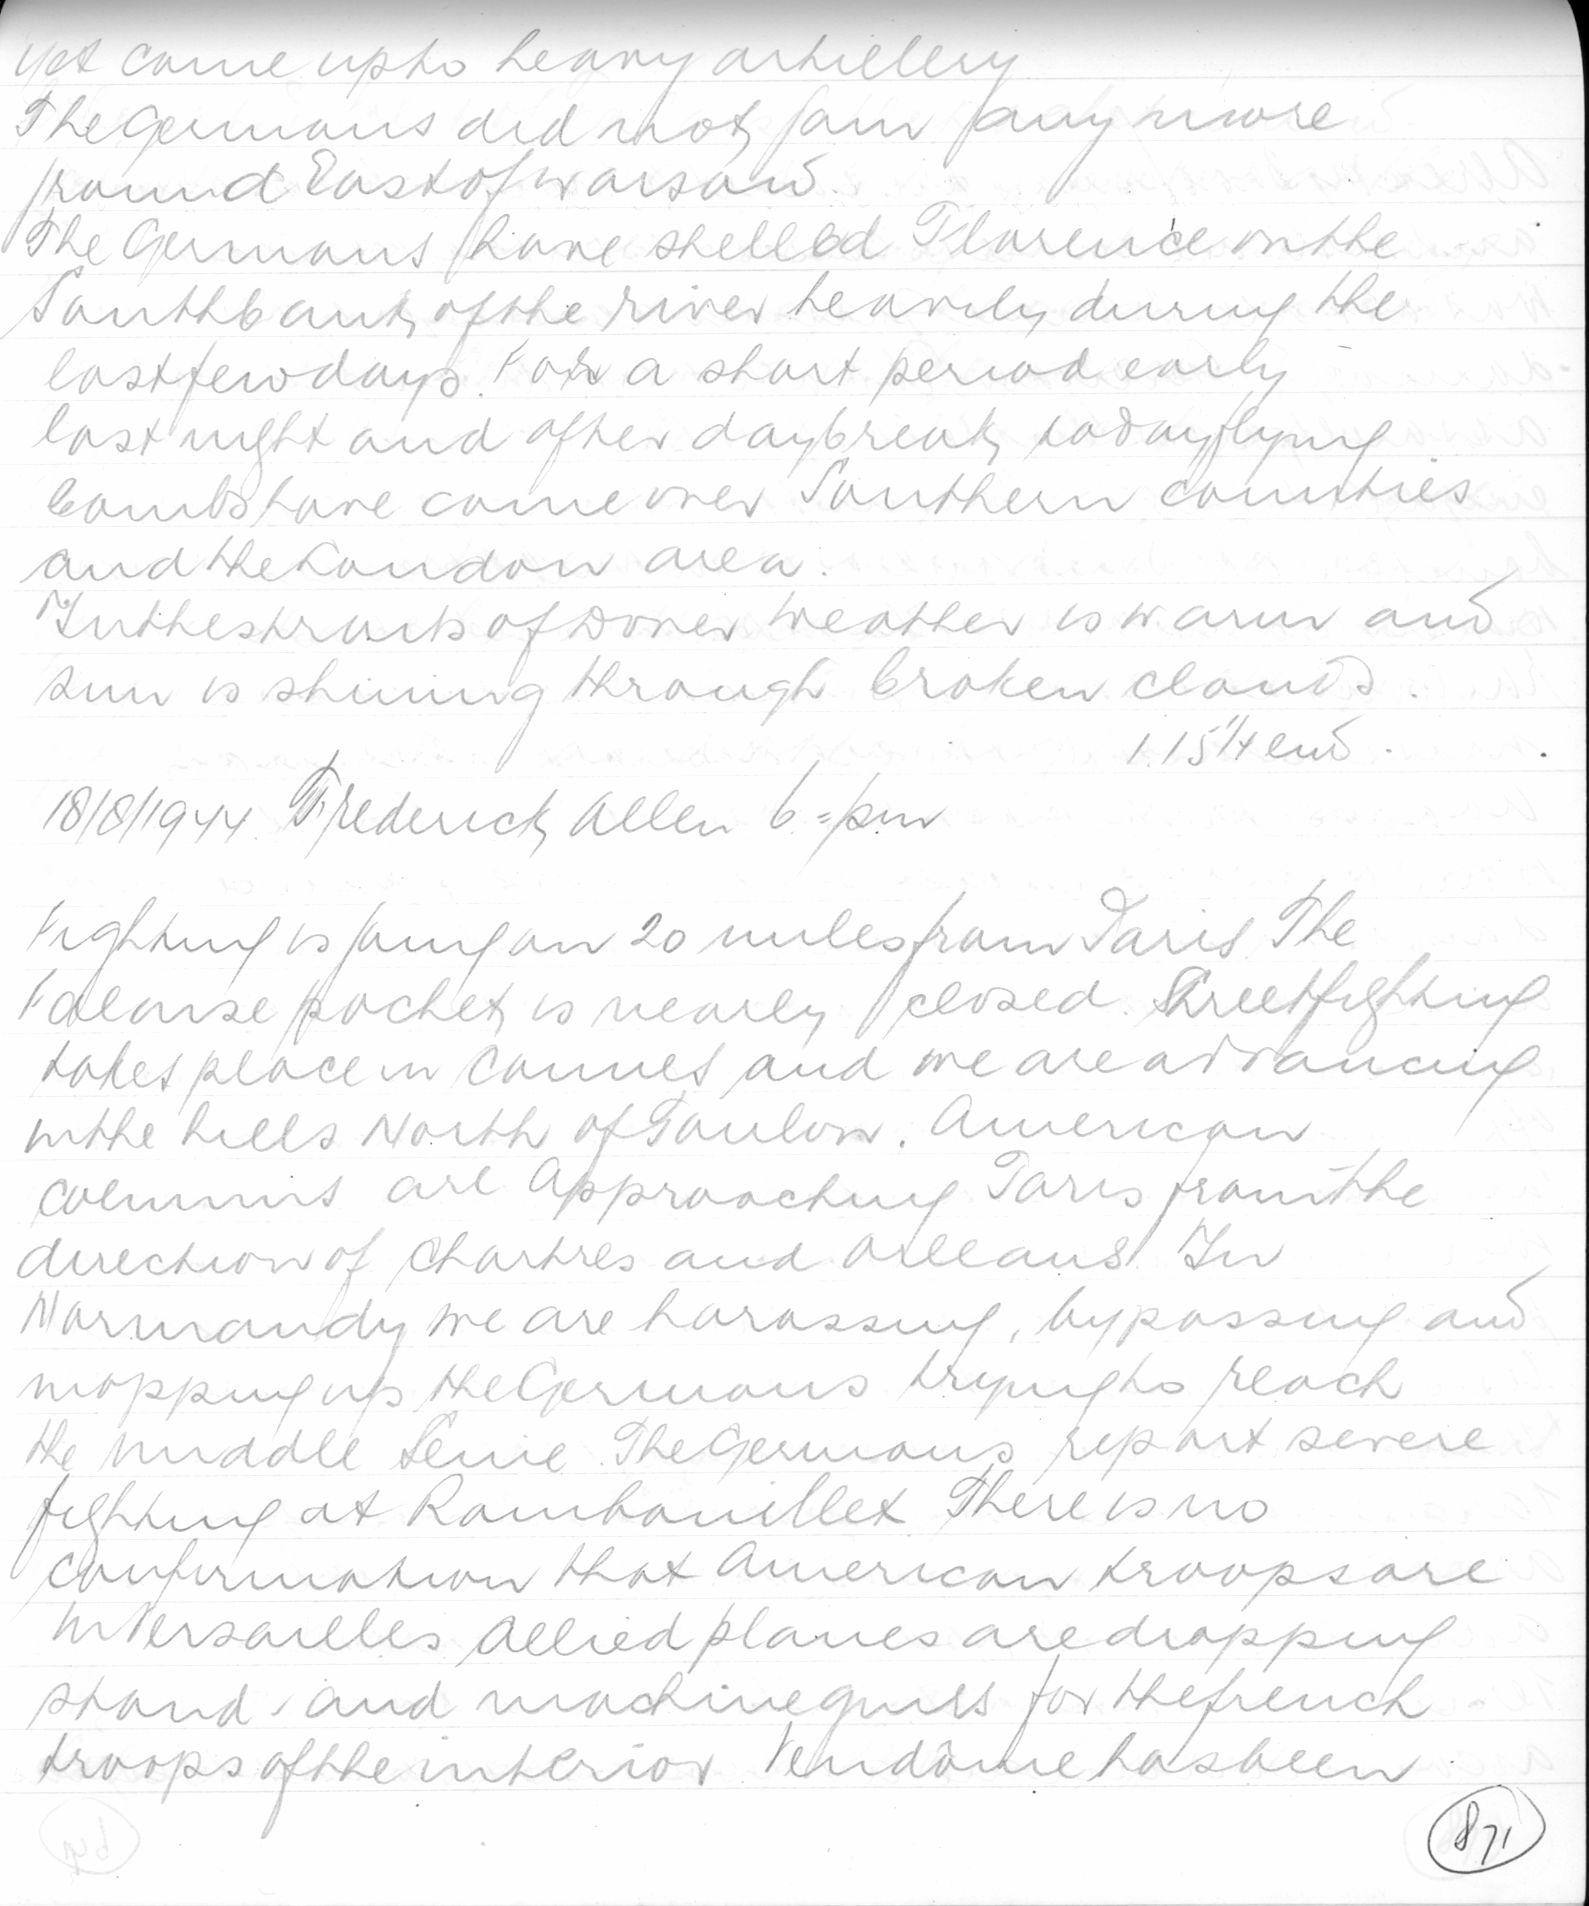 yet come up to heavy artillery
The Germans did not gain any more
ground East of Warsaw.
The Germans have shelled Florence on the
South bank of the river heavily during the
last few days. For a short period early
last night and after daybreak today flying
bombs have come over Southern counties
and the London area.
In the straits of Dover weather is warm and
sun is shining through broken clouds.
1.15 1/4 end.
18/8/1944. Frederick Allen 6 = pm
Fighting is going on 20 miles from Paris. The
Falaise pocket is nearly closed. Streetfighting
takes place in Cannes and we are advancing
in the hills North of Toulon. American
columns are approaching Paris from the
direction of Chartres and Orleans. In
Normandy we are harassing, bypassing and
mopping up the Germans trying to reach
the middle Seine. The Germans report severe
fighting at Rambouillet. There is no
confirmation that American troops are
in Versailles. Allied planes are dropping
and machineguns for the french
troops of the interior. Vendôme has been
871